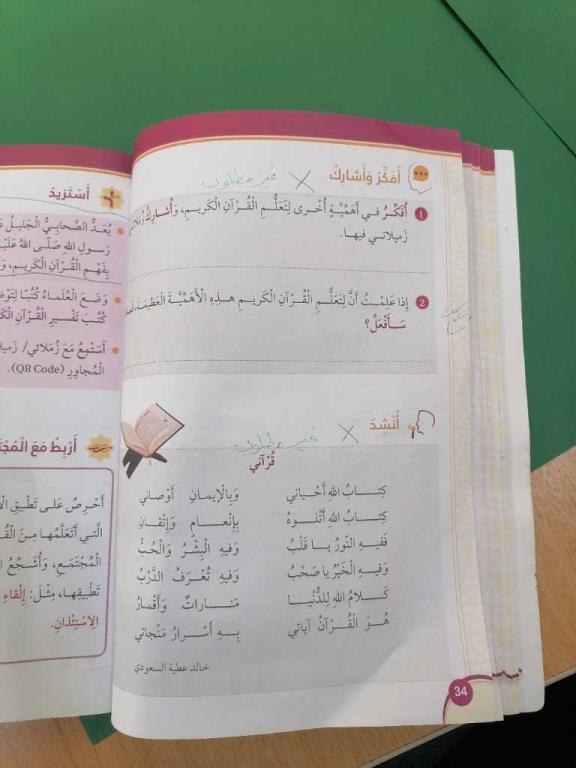 أُفَكِّرُ وَأُشارِكُ
غير مطلوب
1 أُفَكِّرُ في أَهَمِّيَّةٍ أُخْرى لِتَعَلُّمِ الْقُرْآنِ الْكَريمِ، وَأُشارِكُ
زَميلاتي فيها.
2 إِذا عَلِمْتُ أَنَّ لِتَعَلُّمِ الْقُرْآنِ الْكَريمِ هذِهِ الْأَهَمِّيَّةَ الْعَظيمَةَ،
سَأَفْعَلُ؟
أُنْشِدُ
غير مطلوب
قُرْآني
كِتابُ اللهِ أَحْياني وَبِالْإيمانِ أَوْصاني
كِتابُ اللهِ أَتْلوهُ بِإِنْعامٍ وَإِتْقانِ
فَفيهِ النّورُ يا قَلْبُ وَفيهِ الْبِشْرُ وَالْحُبُّ
وَفيهِ الْخَيْرُ يا صَحْبُ وَفيهِ تُعْرَفُ الدَّرْبُ
كَلامُ اللهِ لِلدُّنْيا مَناراتٌ وَأَقْمارُ
هُوَ الْقُرْآنُ آياتي بِهِ أَسْرارُ مَنْجاتي
خالد عطية السعودي
34
أَسْتَزيدُ
يُعَدُّ الصَّحابِيُّ الْجَليلُ
رَسولِ اللهِ صَلّى اللهُ عَلَيْهِ
بِفَهْمِ الْقُرْآنِ الْكَريمِ،
وَضَعَ الْعُلَماءُ كُتُبًا
كُتُبَ تَفْسيرِ الْقُرْآنِ
أَسْتَمِعُ مَعَ زُمَلائي/
الْمُجاوِرِ (QR Code).
أَرْبِطُ مَعَ
أَحْرِصُ عَلى تَطْبيقِ
الَّتي أَتَعَلَّمُها مِنَ
الْمُجْتَمَعِ، وَأُشَجِّعُ
تَطْبيقِها، مِثْلَ: إِلْقاءِ
الِاسْتِئْذانِ.